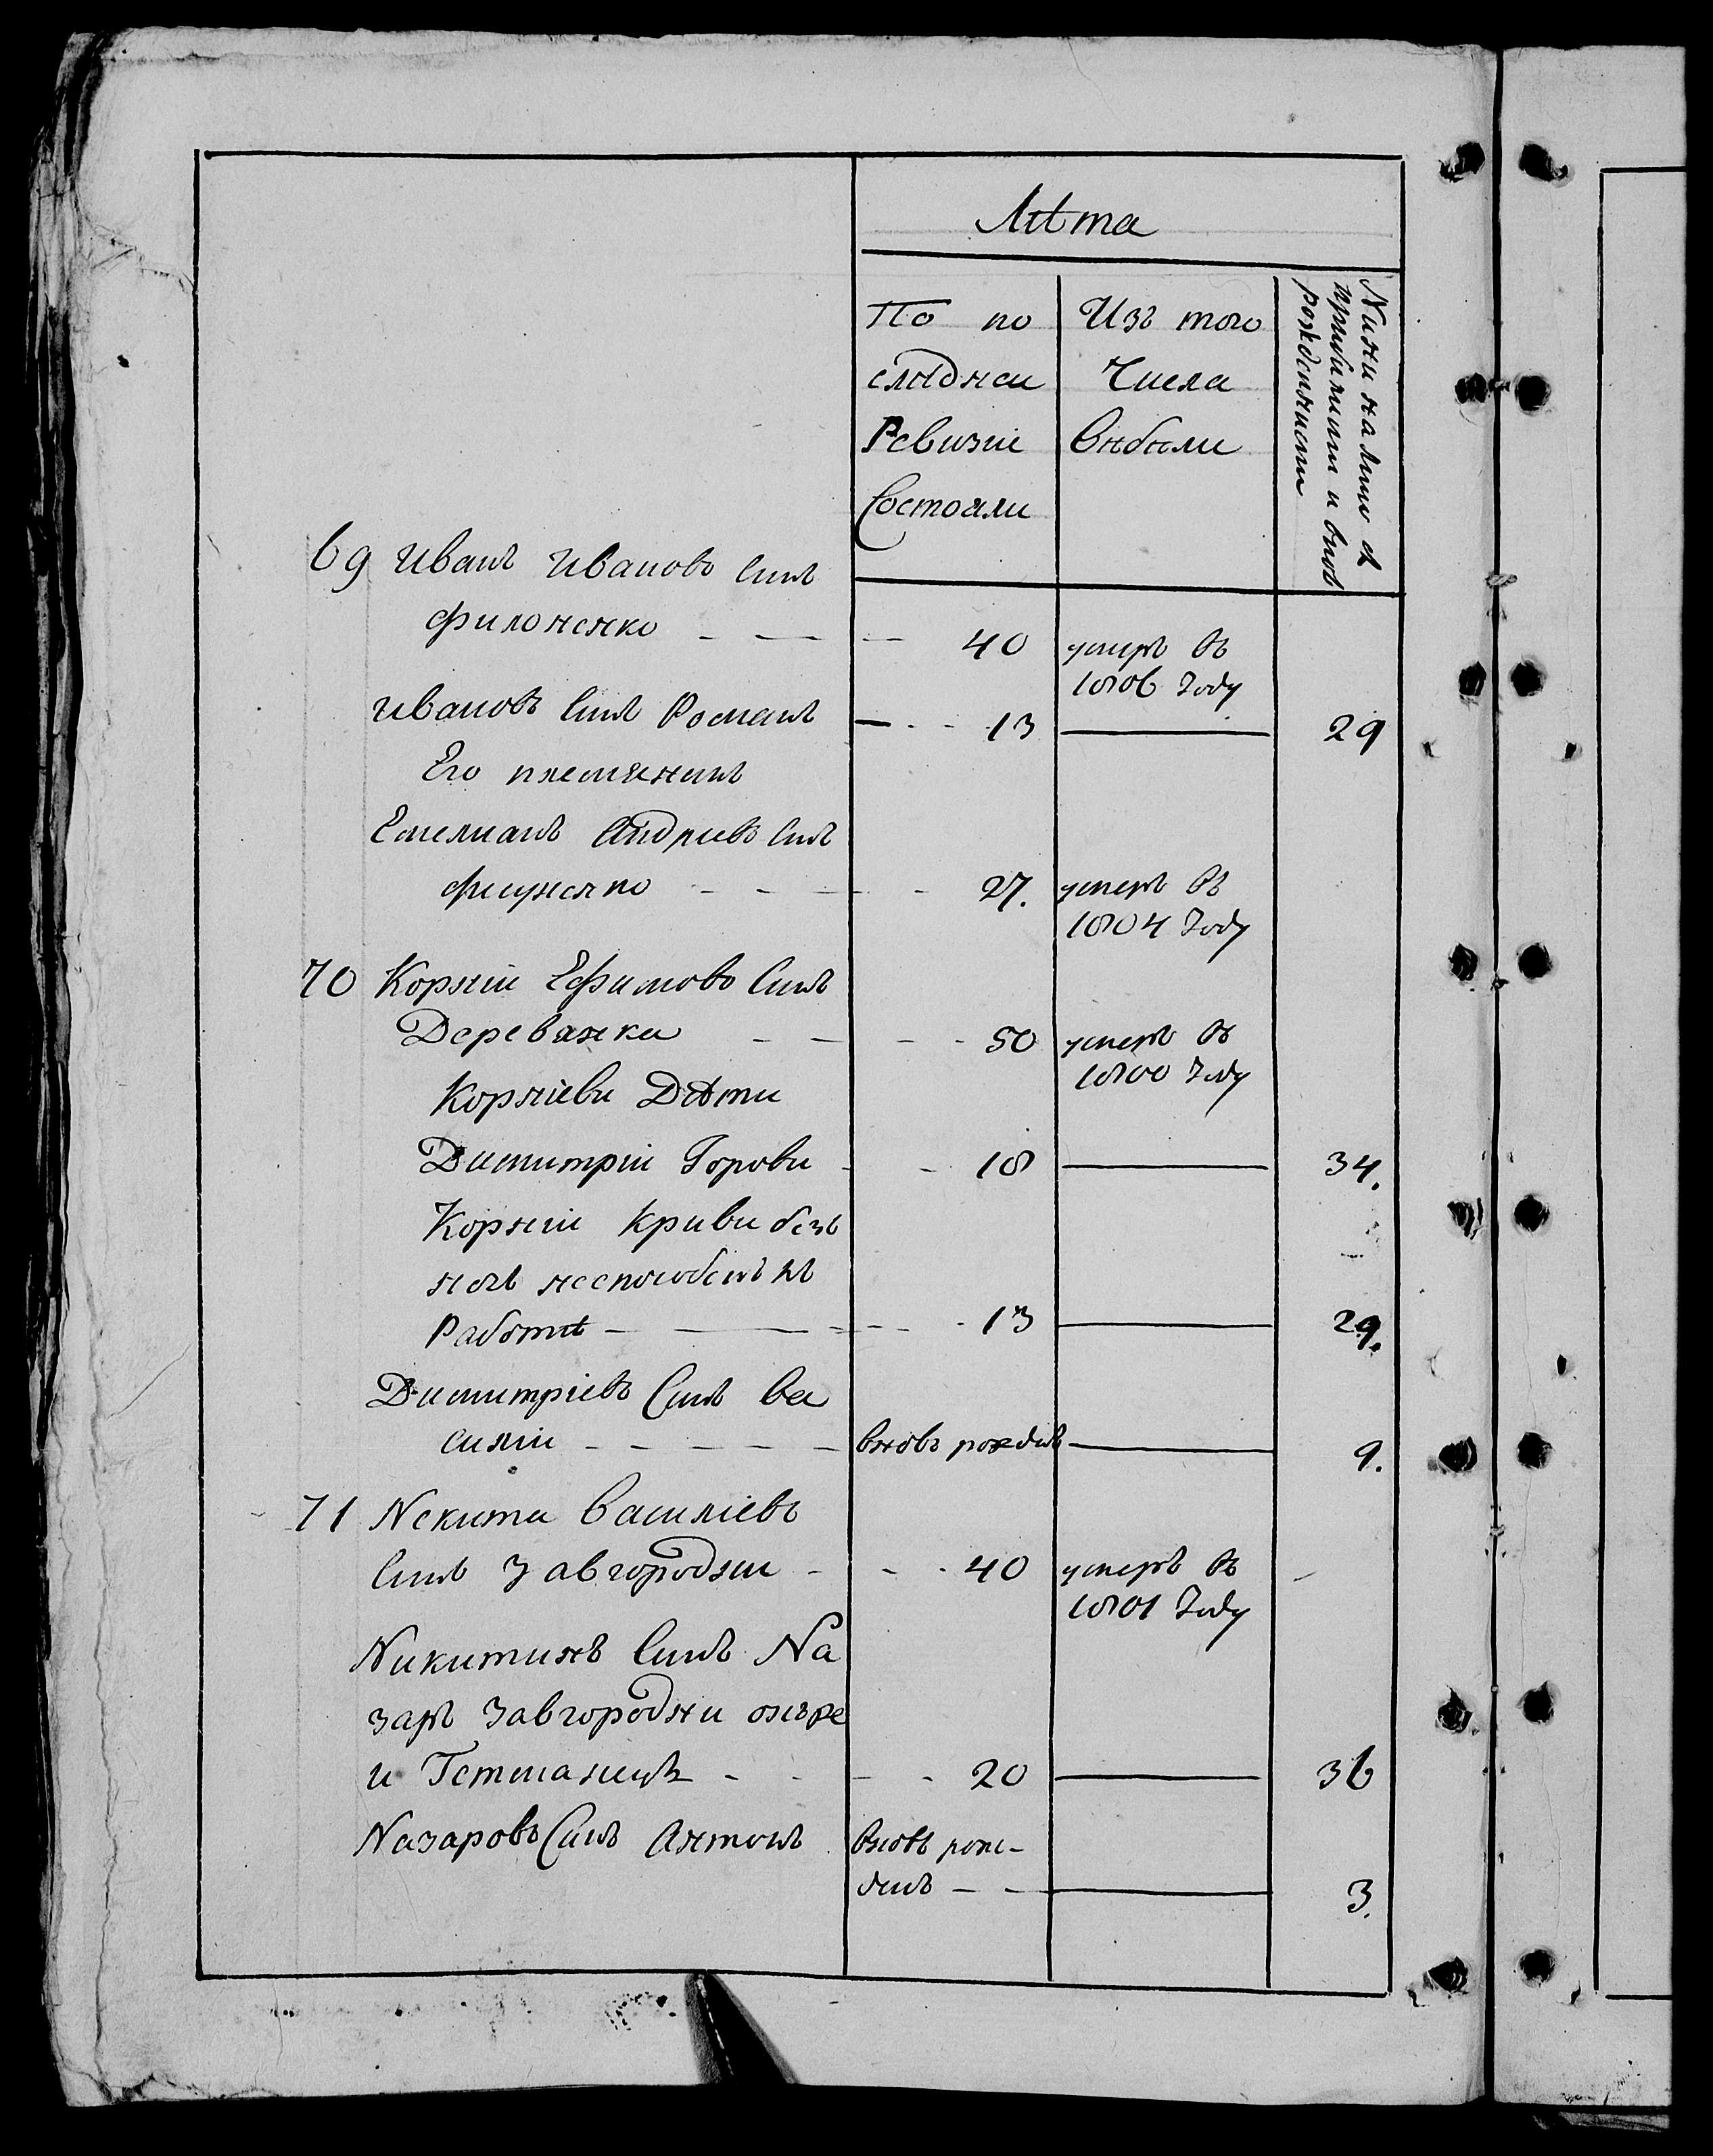 Лѣта
По по
слѣднеи
Ревизіи
Состояли
Изъ того
Числа
выбыли
Нинѣ на лицо съ
прибилими и вновь
рожденними
69 Иванъ Ивановъ Синъ
Филоненко — — — 40 умеръ въ
1806 Году
Ивановъ Синъ Романъ — - - 13 — 29
Его племянникъ
Емелианъ Андриевъ Синъ
- - - - 27. умеръ въ
1804 Году
70 Корнїи Ефимовъ Синъ
Деревянка — — - - 50 умеръ въ
1800 Году
Корнїеви Дѣти
Димитрїи Горови - - 18 — 34.
Корнїи Криви безъ
ногъ неспособенъ къ
Работѣ — — — - - - 13 — 29.
Димитрїевъ Синъ Ва
силїи - - — — — вновь рожденъ — 9.
71 Некита Василїевъ
Синъ Завгороднїи - - - 40 умеръ въ
1801 Году
Никитинъ Синъ На
заръ Завгородни онъ же
и Гетманецъ - - - - 20 — 36
Назаровъ Синъ Антонъ вновь рож-
денъ — — — 3.